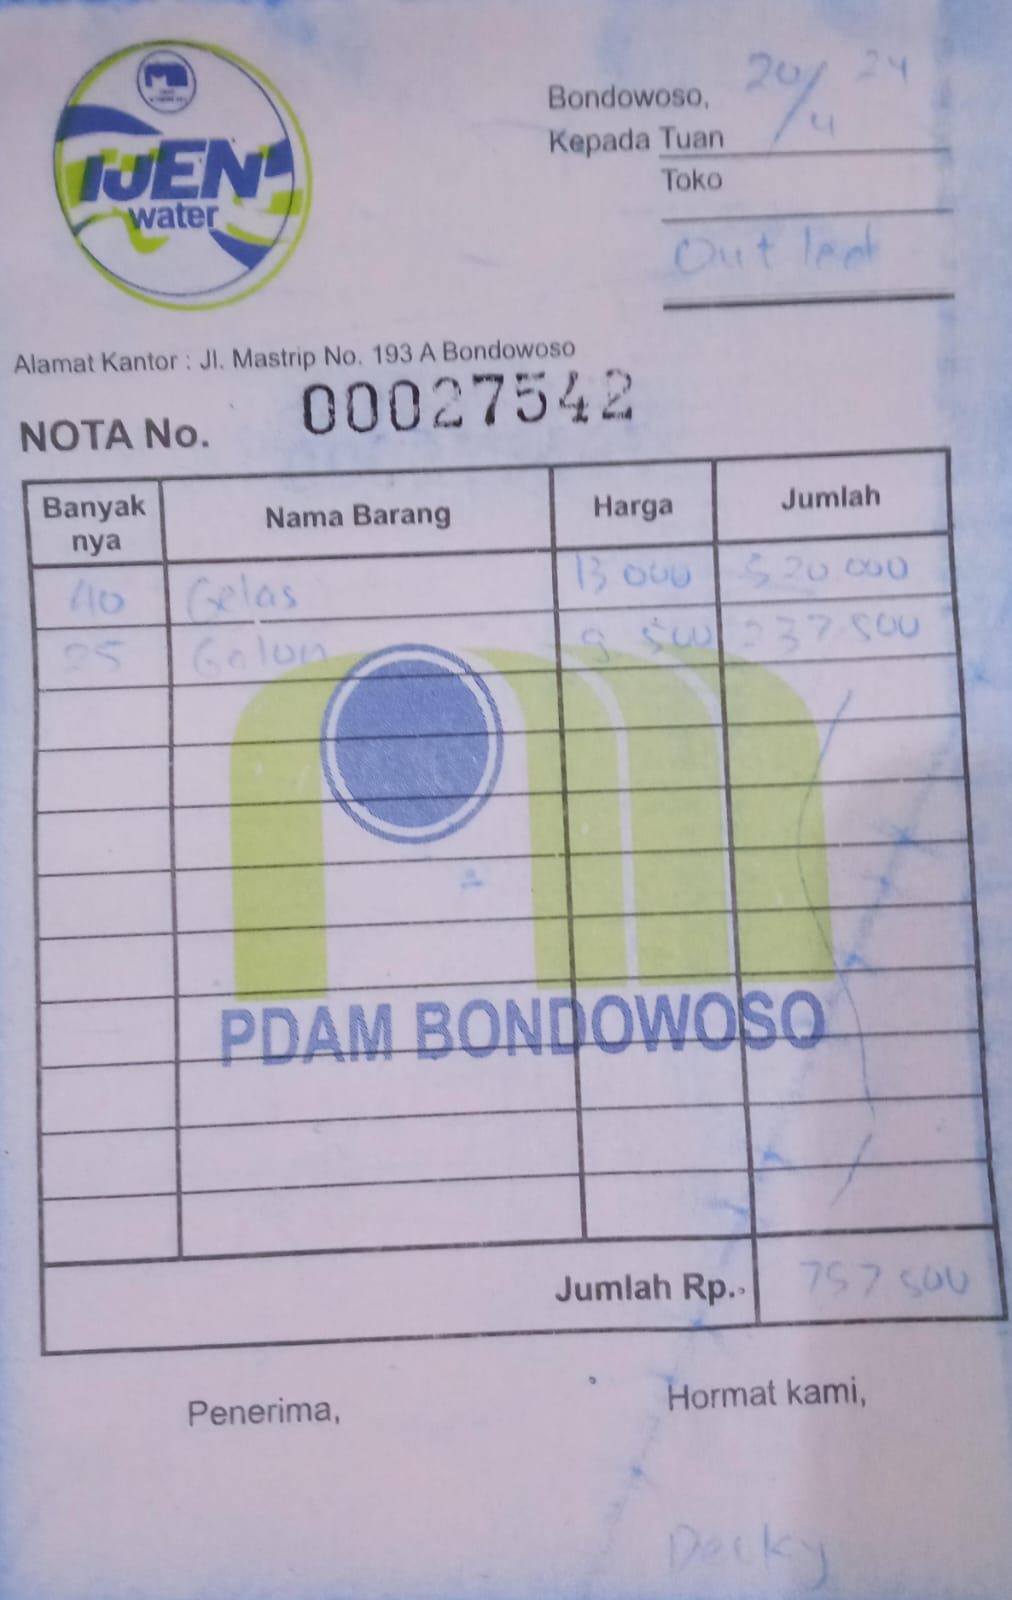 IJEN
water
Bondowoso, 20/4 24
Kepada Tuan
Toko
Out leet
Alamat Kantor : Jl. Mastrip No. 193 A Bondowoso
NOTA No. 00027542
Banyak nya Nama Barang Harga Jumlah
40 Gelas 13 000 520 000
25 Galon 9 500 237 500
PDAM BONDOWOSO
Jumlah Rp. 757 500
Penerima, Hormat kami,
Decky